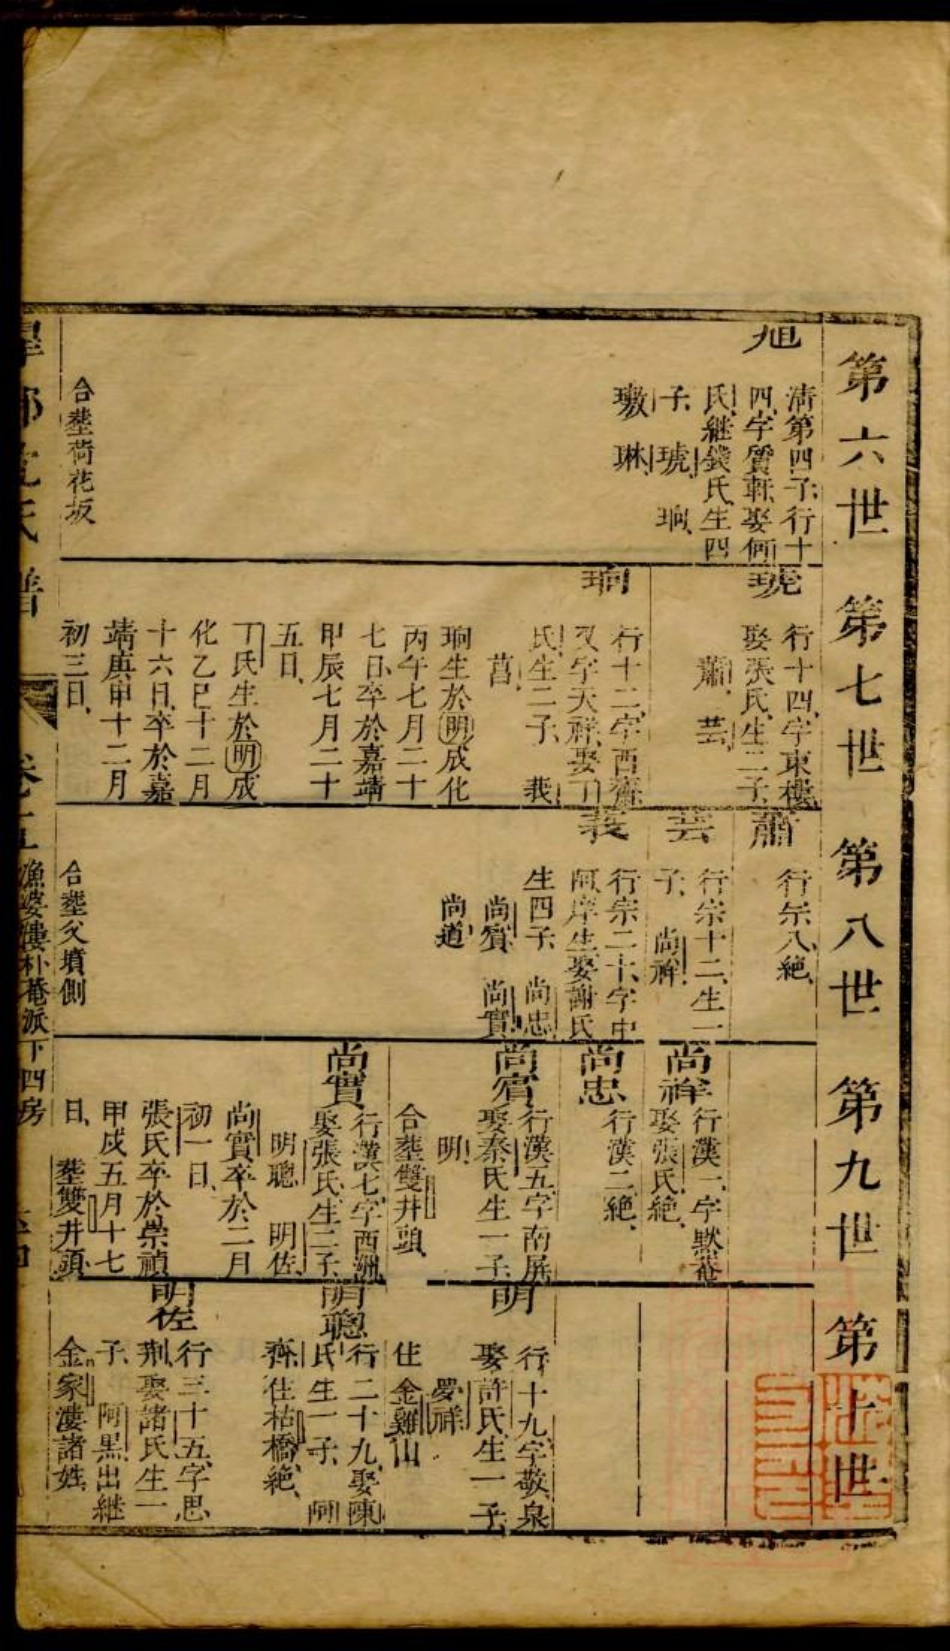 第六世 第七世 第八世 第九世 第十世
旭
清第四子行十
四字質軒娶何
氏繼錢氏生四
子 琥 珦
璥 琳
合塟荷花坂
琥
行十四字東樓
娶張氏生二子
蕭 芸
珦
行十二字西齋
又字天祥娶丁
氏生二子 莪
莒
珦生於明成化
丙午七月二十
七日卒於嘉靖
甲辰七月二十
五日
丁氏生於明成
化乙巳十二月
十六日卒於嘉
靖庚申十二月
初三日
蕭
行宗八絶
芸
行宗十二生一
子 尚祥
莪
行宗二十字中
阿岸生娶謝氏
生四子 尚忠
尚賓 尚實
尚道
合塟父墳側
尚祥
行漢一字默菴
娶張氏絶
尚忠
行漢二絶
尚賓
行漢五字南屏
娶秦氏生一子
明
合塟雙井頭
尚實
行漢七字西洲
娶張氏生二子
明聰 明佐
尚實卒於二月
初一日
張氏卒於崇禎
甲戌五月十七
日 塟雙井頭
明
行十九字敬泉
娶許氏生一子
夢祥
住金雞山
明聰
行二十九娶陳
氏生一子 阿
齊住枯橋絶
明佐
行三十五字思
荆娶諸氏生一
子 阿黑出継
金家漊諸姓
氏譜
卷之五 漁婆樓朴菴派下四房